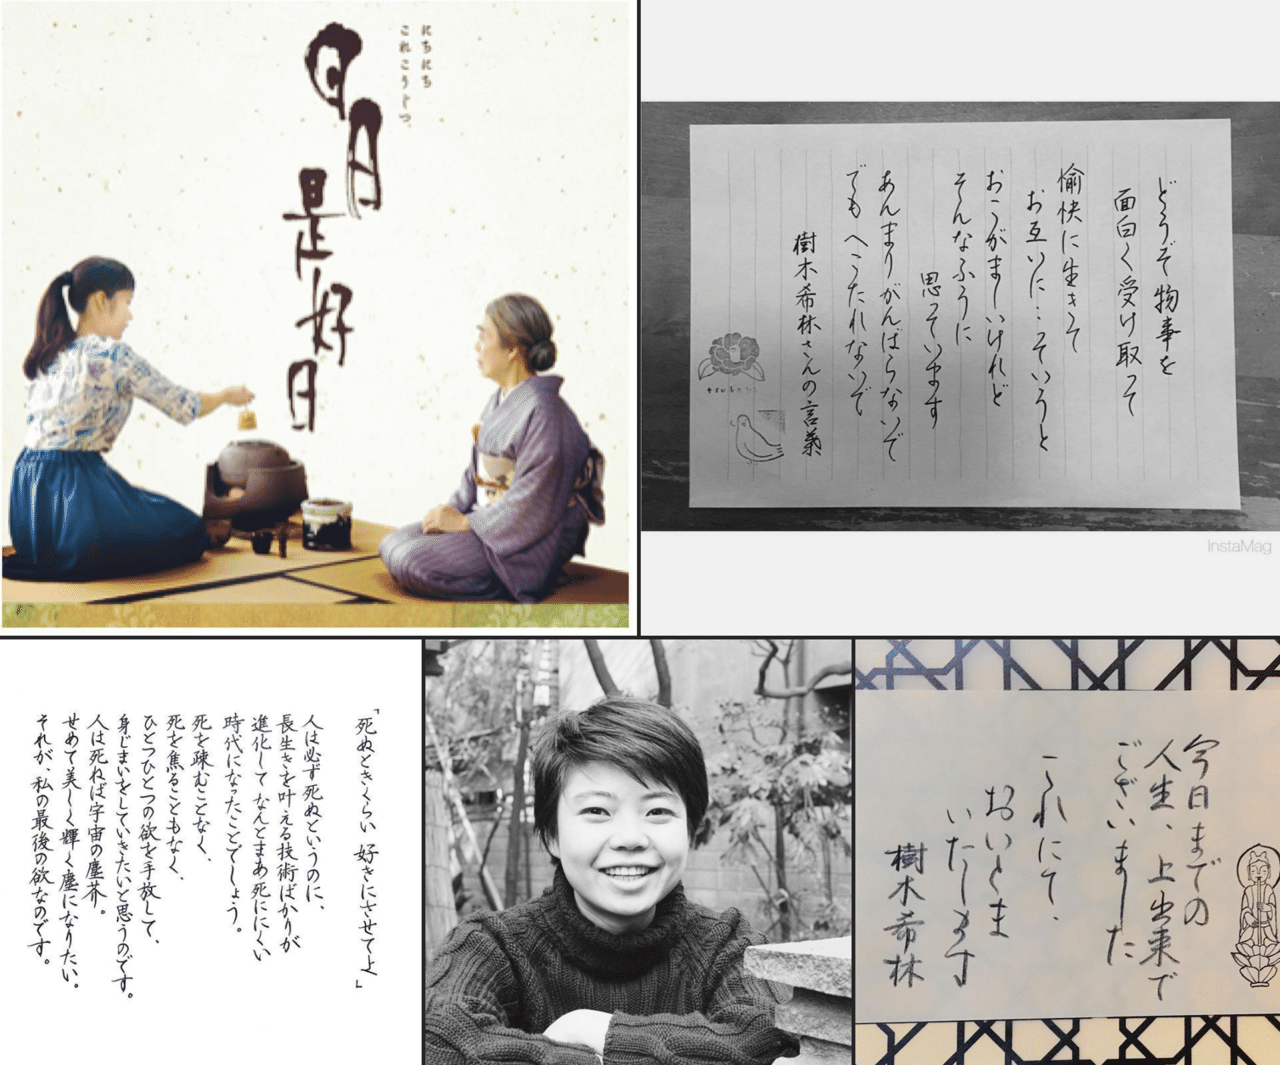 にちにち
これこうじつ
日日是好日
どうぞ物事を
面白く受け取って
愉快に生きて
お互いに…っていうと
おこがましいけれど
そんなふうに
思っています
あんまりがんばらないで
でもへこたれないで
樹木希林さんの言葉
InstaMag
「死ぬときくらい 好きにさせてよ」
人は必ず死ぬというのに、
長生きを叶える技術ばかりが
進化して なんとまあ死ににくい
時代になったことでしょう。
死を疎むことなく、
死を焦ることもなく、
ひとつひとつの欲を手放して、
身じまいをしていきたいと思うのです。
人は死ねば宇宙の塵芥。
せめて美しく輝く塵になりたい。
それが、私の最後の欲なのです。
今日までの
人生、上出来で
ございました
これにて、
おいとま
いたします
樹木希林